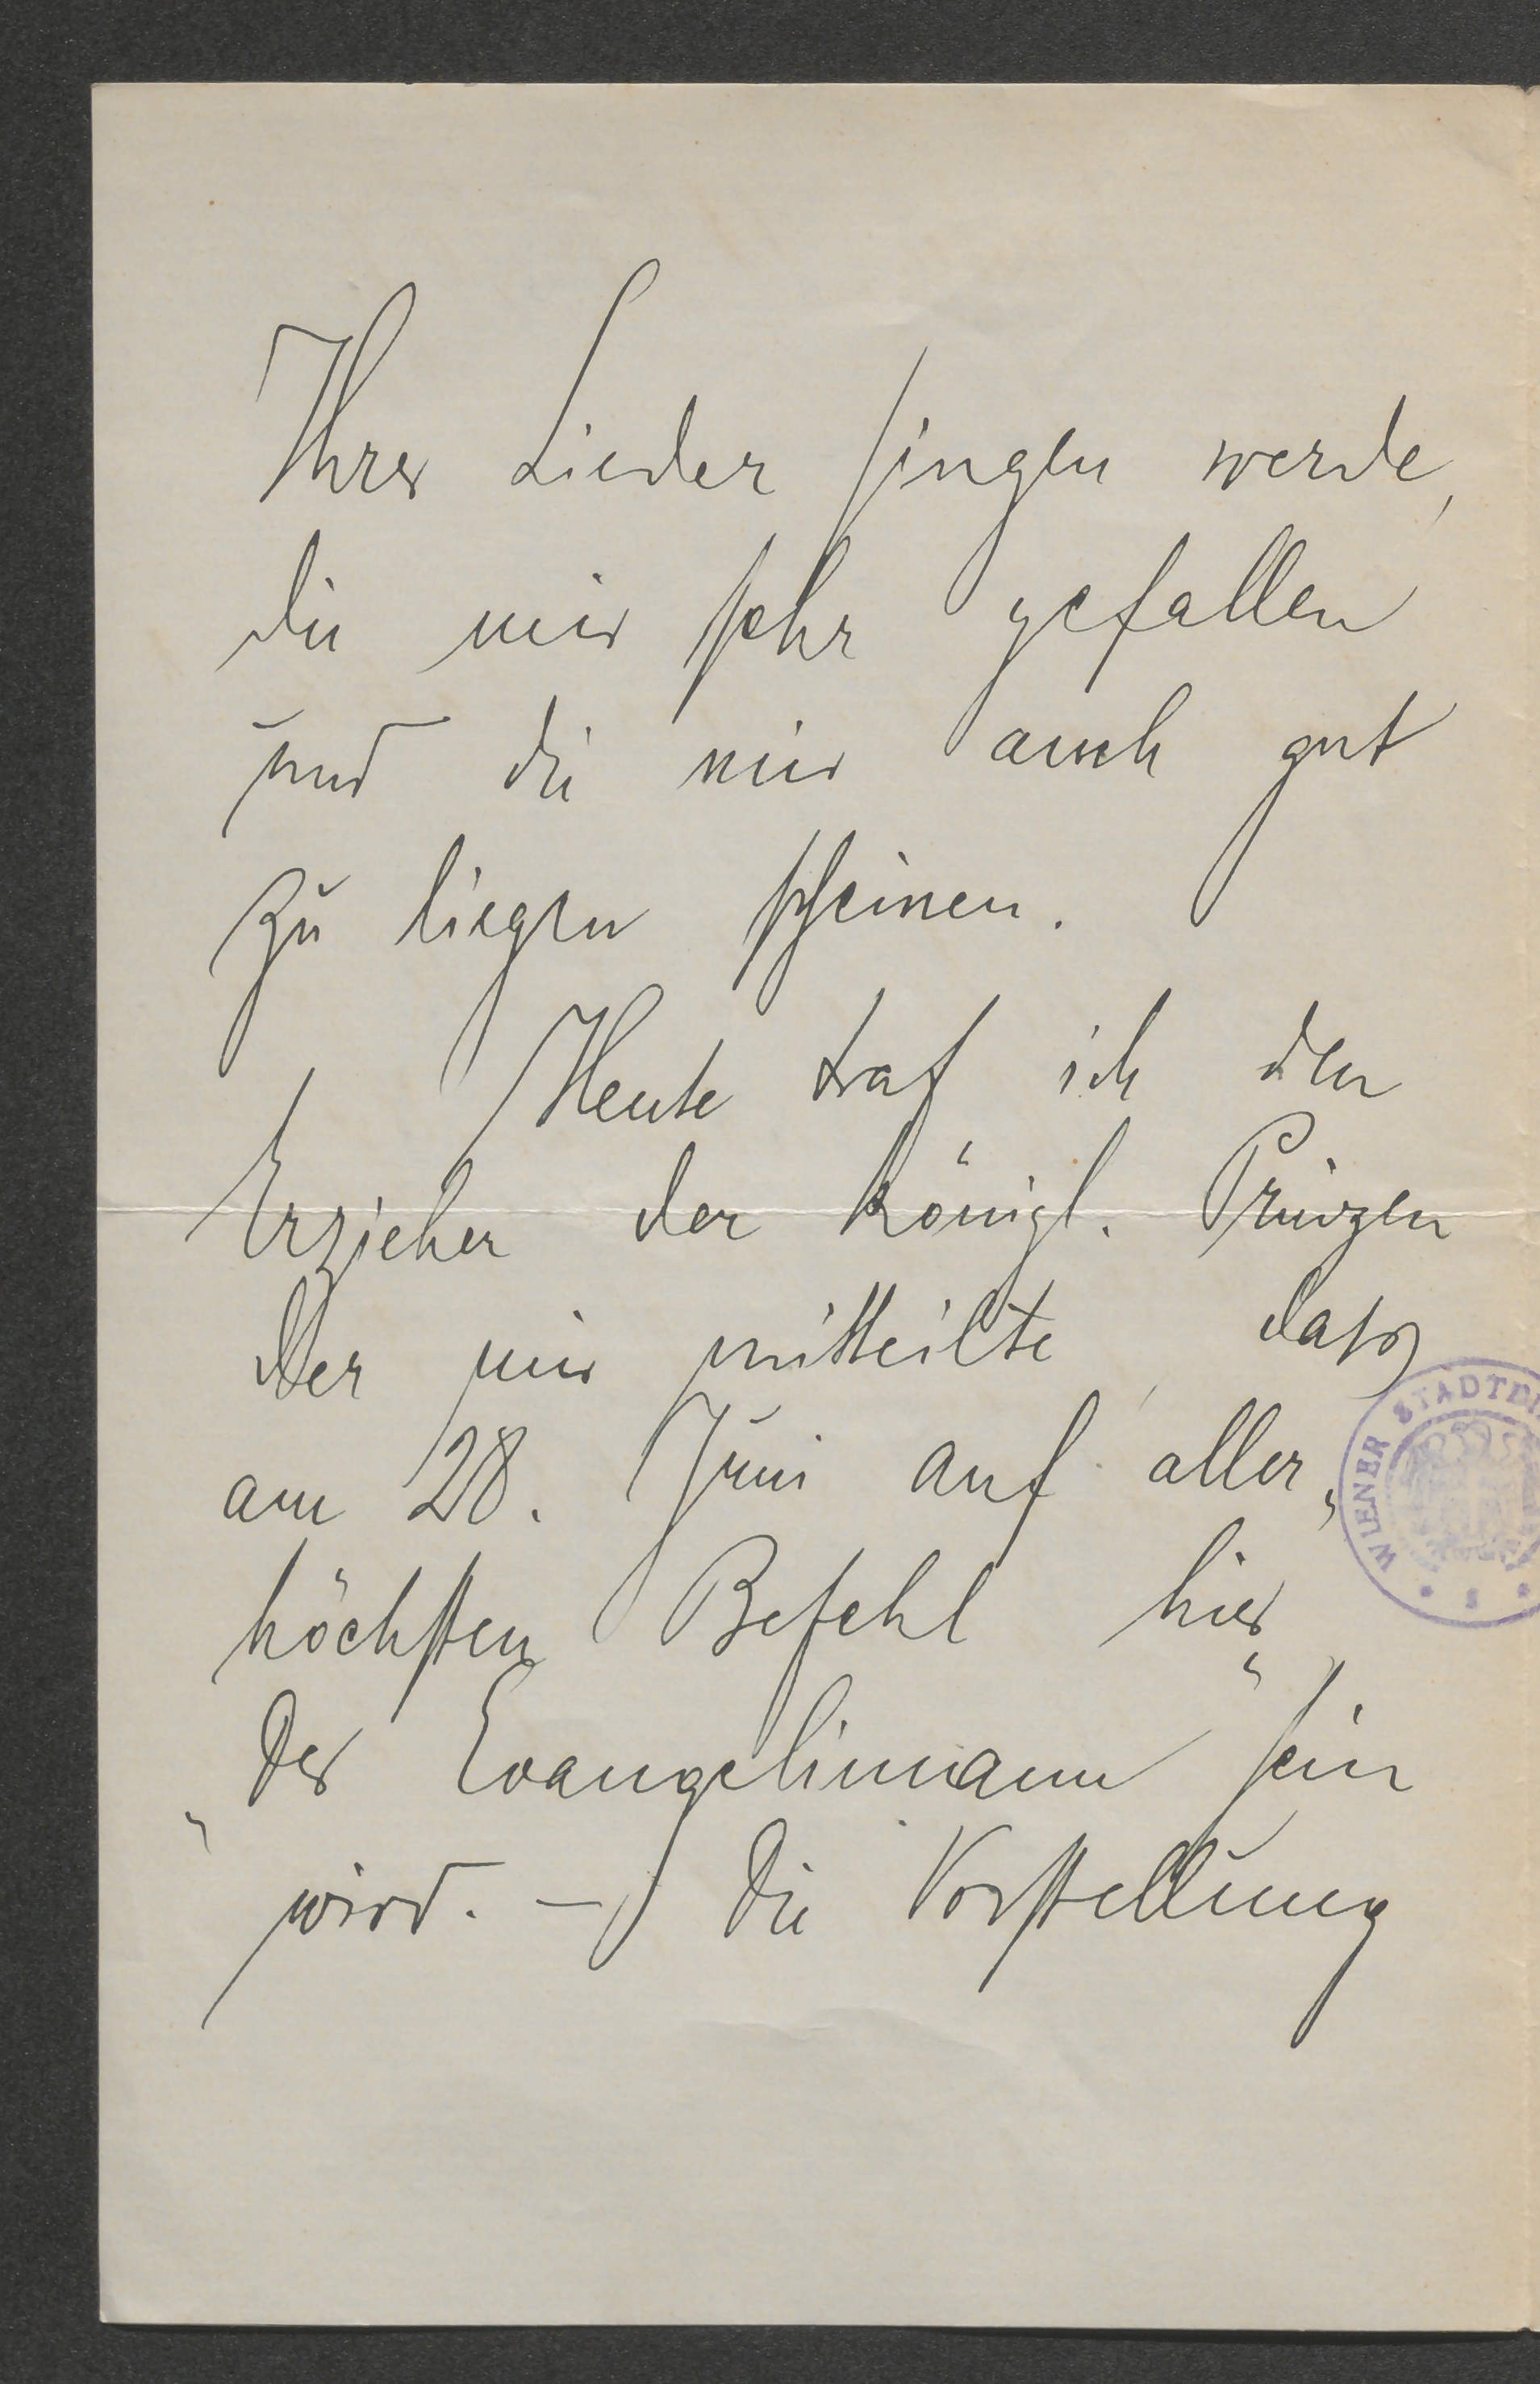 Ihrer Lieder singen werde,
die mir sehr gefallen
und die mir auch gut
zu liegen scheinen.
Heute traf ich den
Erzieher der königl. Prinzen
der mir mitteilte, dass
am 28. Juni auf aller„
höchsten Befehl hier
„Der Evangelimann“ sein
wird. – Die Vorstellung
WIENER STADTBI